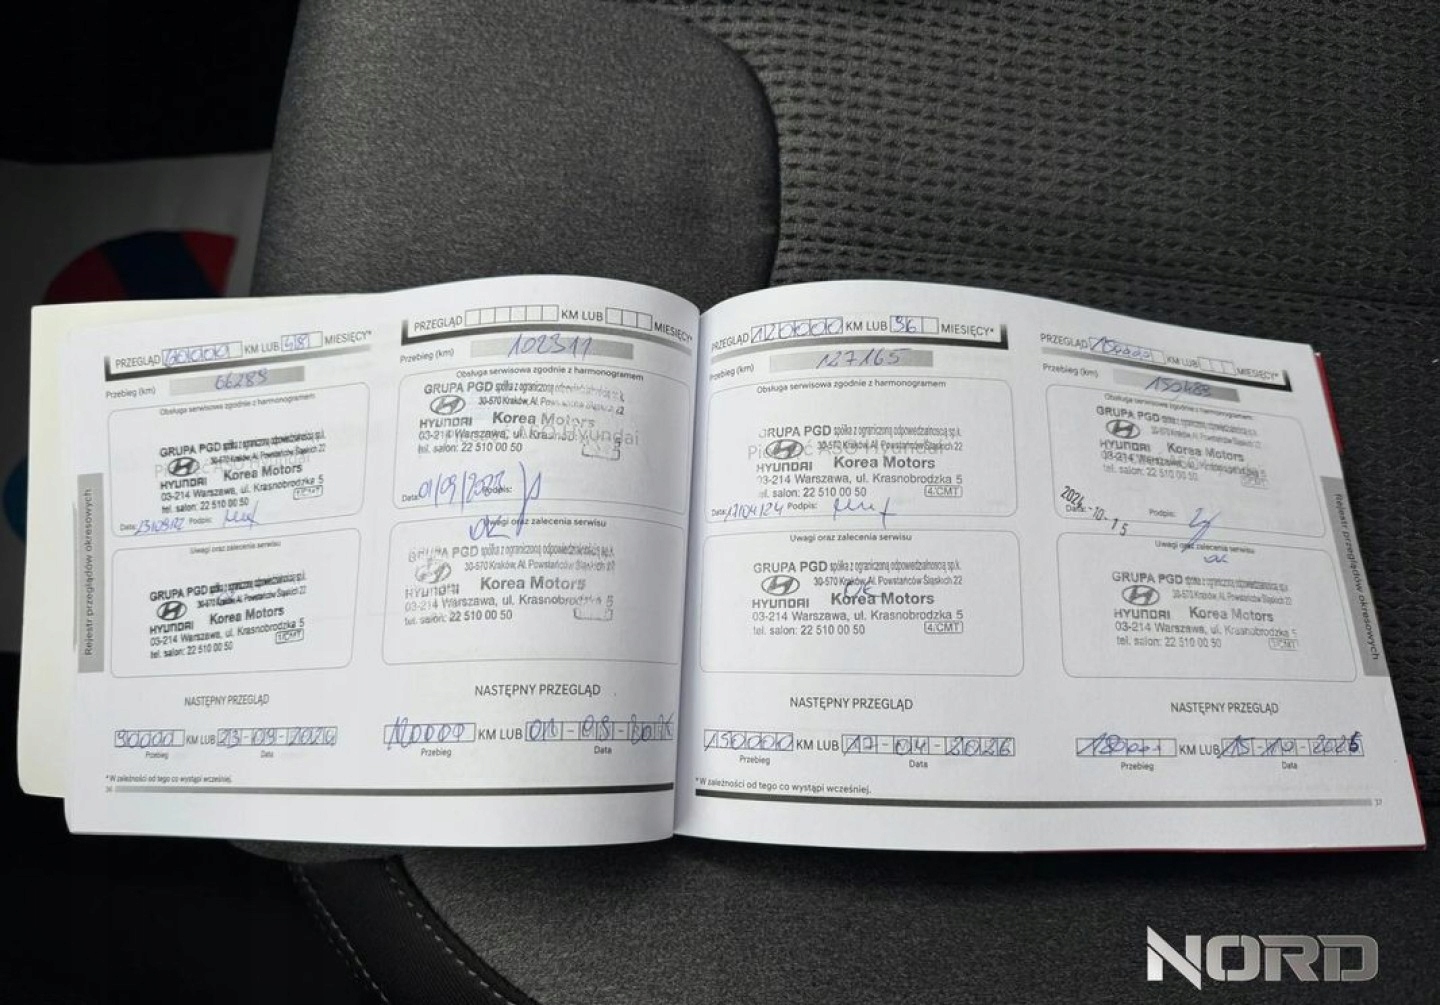 PRZEGLĄD 60000 KM LUB 48 MIESIĘCY*
Przebieg (km) 66289
Obsługa serwisowa zgodnie z harmonogramem
GRUPA PGD spółka z ograniczoną odpowiedzialnością sp.k.
30-570 Kraków, Al. Powstańców Śląskich 22
HYUNDAI Korea Motors
03-214 Warszawa, ul. Krasnobrodzka 5
tel. salon: 22 510 00 50
Data: Podpis:
Uwagi oraz zalecenia serwisu
GRUPA PGD spółka z ograniczoną odpowiedzialnością sp.k.
30-570 Kraków, Al. Powstańców Śląskich 22
HYUNDAI Korea Motors
03-214 Warszawa, ul. Krasnobrodzka 5
tel. salon: 22 510 00 50
1/CMT
NASTĘPNY PRZEGLĄD
90000 KM LUB 23-09-2024
Przebieg Data
*W zależności od tego co wystąpi wcześniej.
36
Rejestr przeglądów okresowych
PRZEGLĄD KM LUB MIESIĘCY*
Przebieg (km) 102311
Obsługa serwisowa zgodnie z harmonogramem
GRUPA PGD spółka z ograniczoną odpowiedzialnością sp.k.
30-570 Kraków, Al. Powstańców Śląskich 22
HYUNDAI Korea Motors
03-214 Warszawa, ul. Krasnobrodzka 5
tel. salon: 22 510 00 50
Data: 01/09/2023 Podpis:
OK
Uwagi oraz zalecenia serwisu
GRUPA PGD spółka z ograniczoną odpowiedzialnością sp.k.
30-570 Kraków, Al. Powstańców Śląskich 22
HYUNDAI Korea Motors
03-214 Warszawa, ul. Krasnobrodzka 5
tel. salon: 22 510 00 50
NASTĘPNY PRZEGLĄD
120000 KM LUB
Przebieg Data
PRZEGLĄD 120000 KM LUB 36 MIESIĘCY*
Przebieg (km) 127165
Obsługa serwisowa zgodnie z harmonogramem
GRUPA PGD spółka z ograniczoną odpowiedzialnością sp.k.
30-570 Kraków, Al. Powstańców Śląskich 22
HYUNDAI Korea Motors
03-214 Warszawa, ul. Krasnobrodzka 5
tel. salon: 22 510 00 50 4/CMT
Data: 17/04/24 Podpis:
Uwagi oraz zalecenia serwisu
GRUPA PGD spółka z ograniczoną odpowiedzialnością sp.k.
30-570 Kraków, Al. Powstańców Śląskich 22
OK
HYUNDAI Korea Motors
03-214 Warszawa, ul. Krasnobrodzka 5
tel. salon: 22 510 00 50 4/CMT
NASTĘPNY PRZEGLĄD
150000 KM LUB 17-04-2026
Przebieg Data
*W zależności od tego co wystąpi wcześniej.
PRZEGLĄD 150000 KM LUB MIESIĘCY*
Przebieg (km)
Obsługa serwisowa zgodnie z harmonogramem
GRUPA PGD spółka z ograniczoną odpowiedzialnością sp.k.
30-570 Kraków, Al. Powstańców Śląskich 22
HYUNDAI Korea Motors
03-214 Warszawa, ul. Krasnobrodzka 5
tel. salon: 22 510 00 50
Data: 2024-10-15 Podpis:
Uwagi oraz zalecenia serwisu
OK
GRUPA PGD spółka z ograniczoną odpowiedzialnością sp.k.
30-570 Kraków, Al. Powstańców Śląskich 22
HYUNDAI Korea Motors
03-214 Warszawa, ul. Krasnobrodzka 5
tel. salon: 22 510 00 50 1/CMT
NASTĘPNY PRZEGLĄD
KM LUB
Przebieg Data
37
Rejestr przeglądów okresowych
NORD